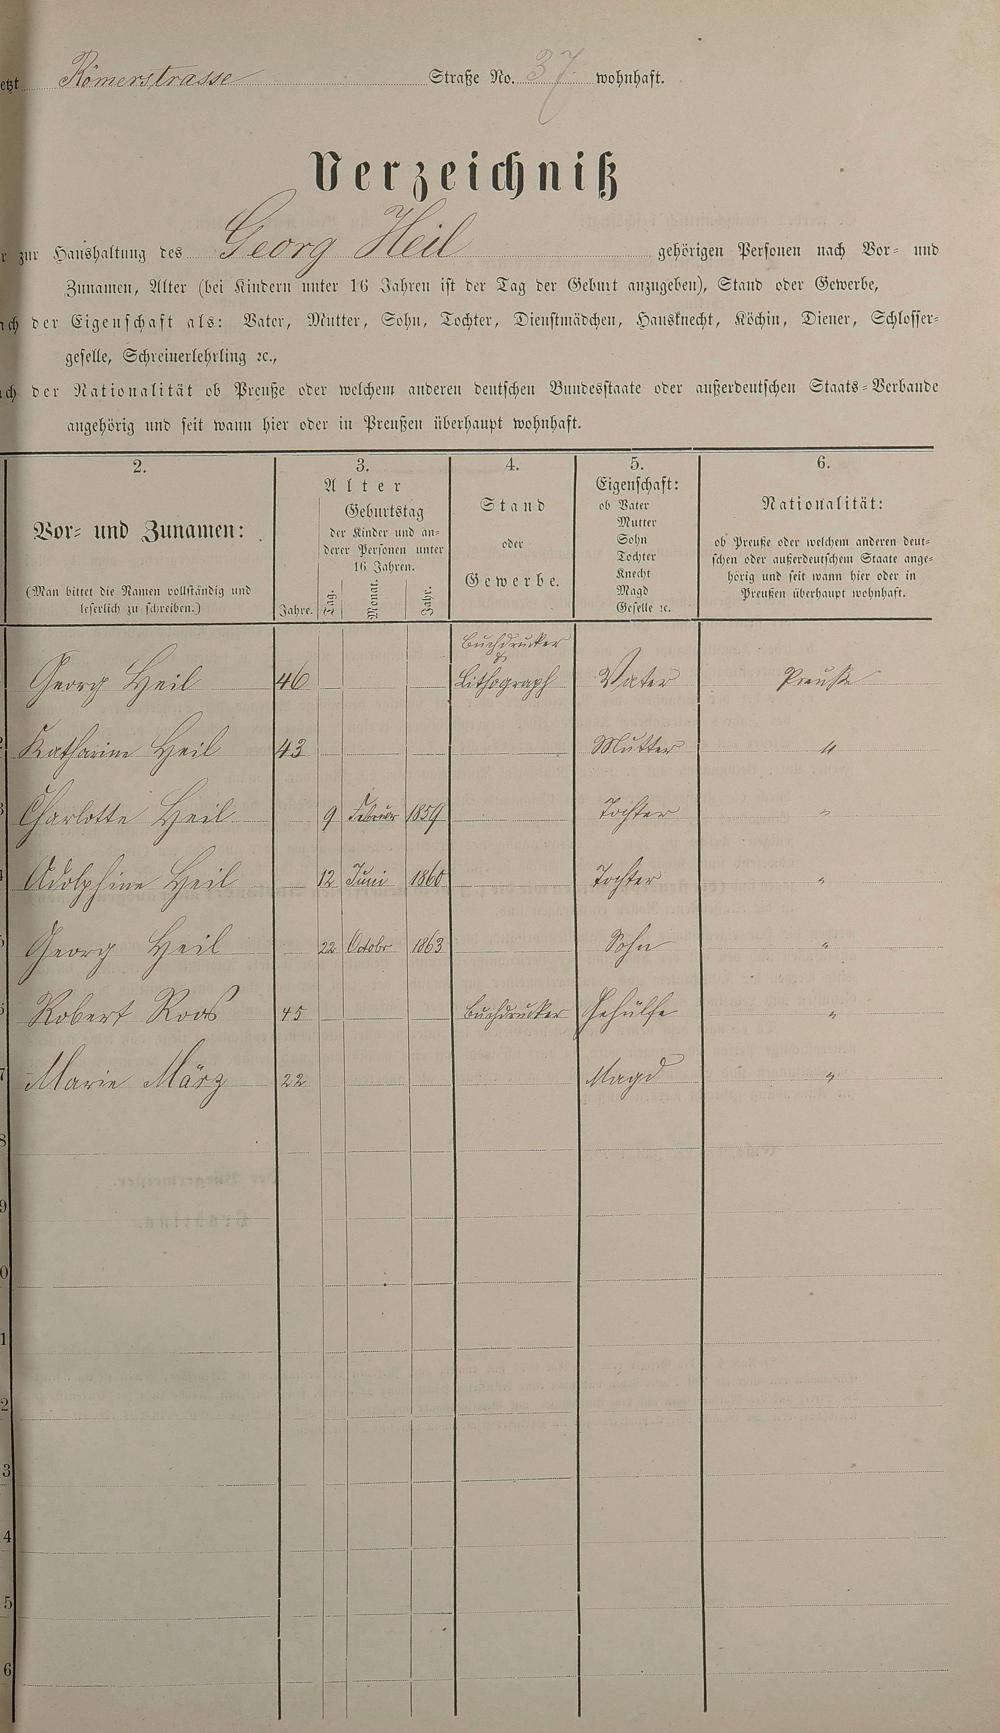 etzt Römerstrasse Straße No. 37 wohnhaft.
Verzeichniß
r zur Haushaltung des Georg Heil gehörigen Personen nach Vor- und
Zunamen, Alter (bei Kindern unter 16 Jahren ist der Tag der Geburt anzugeben), Stand oder Gewerbe,
ch der Eigenschaft als: Vater, Mutter, Sohn, Tochter, Dienstmädchen, Hausknecht, Köchin, Diener, Schlosser-
geselle, Schreinerlehrling ꝛc.,
ch der Nationalität ob Preuße oder welchem anderen deutschen Bundesstaate oder außerdeutschen Staats-Verbande
angehörig und seit wann hier oder in Preußen überhaupt wohnhaft.
2. 3. 4. 5. 6.
Vor- und Zunamen:
(Man bittet die Namen vollständig und
leserlich zu schreiben.)
Alter
Jahre.
Geburtstag
der Kinder und an-
derer Personen unter
16 Jahren.
Tag. Monat. Jahr.
Stand
oder
Gewerbe.
Eigenschaft:
ob Vater
Mutter
Sohn
Tochter
Knecht
Magd
Geselle ꝛc.
Nationalität:
ob Preuße oder welchem anderen deut-
schen oder außerdeutschem Staate ange-
hörig und seit wann hier oder in
Preußen überhaupt wohnhaft.
Buchdrucker
&
Georg Heil 46 Lithograph Vater Preuße
2 Katharine Heil 43 Mutter "
3 Charlotte Heil 9 Februar 1859 Tochter "
4 Adolphine Heil 12 Juni 1860 Tochter "
5 Georg Heil 22 Octobr 1863 Sohn "
6 Robert Roos 45 Buchdrucker Gehülfe "
7 Marie März 22 Magd "
8
9
0
1
2
3
4
5
6